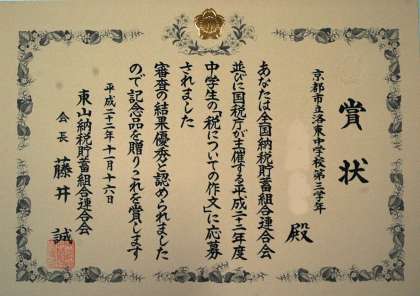 賞状
京都市立洛東中学校第三学年
殿
あなたは全国納税貯蓄組合連合会
並びに国税庁が主催する平成二十二年度
中学生の「税についての作文」に応募
されました
審査の結果優秀と認められました
ので記念品を贈りこれを賞します
平成二十二年十一月十六日
東山納税貯蓄組合連合会
会長 藤井 誠